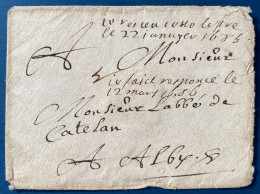 Jy reseu cette lettre
le 22 janvyer 1686
A Monsieur
jy faict responce le
12 mars 1686
Monsieur Labbé de
Catelan
A Alby